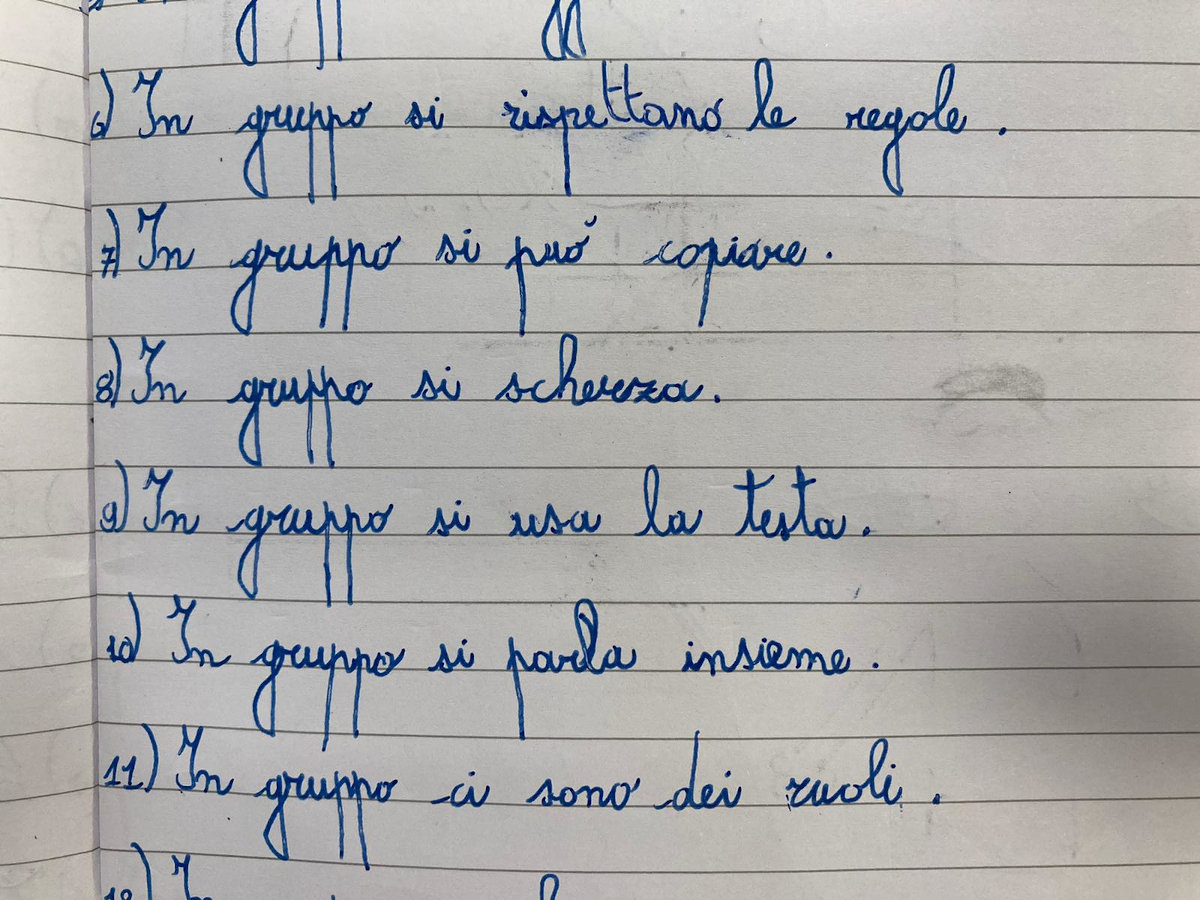 6) In gruppo si rispettano le regole.
7) In gruppo si può copiare.
8) In gruppo si scherza.
9) In gruppo si usa la testa.
10) In gruppo si parla insieme.
11) In gruppo ci sono dei ruoli.
12) In